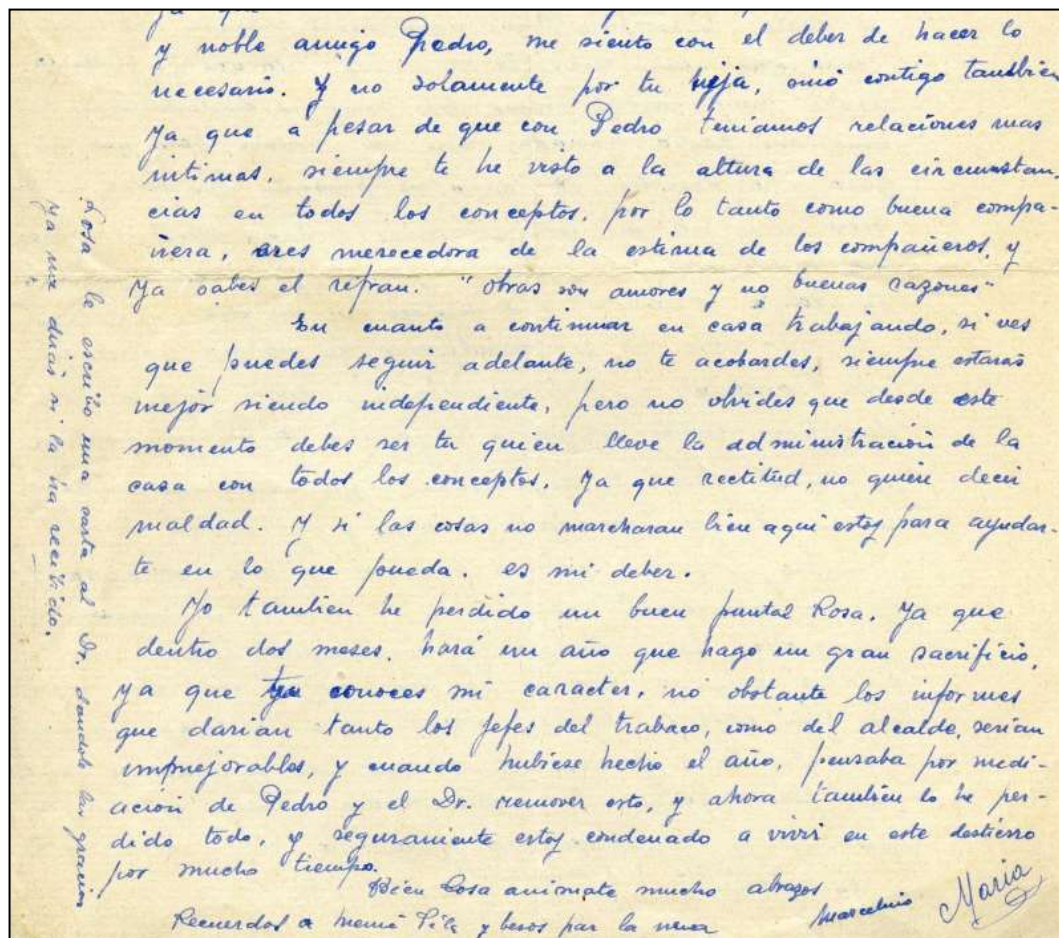 ya que
y noble amigo Pedro, me siento con el deber de hacer lo
necesario. Y no solamente por tu hija, sinó contigo tambien
ya que a pesar de que con Pedro teniamos relaciones mas
intimas, siempre te he visto a la altura de las circunstan,
cias en todos los conceptos, por lo tanto como buena compa-
ñera, eres merecedora de la estima de los compañeros, y
ya sabes el refran. "obras son amores y no buenas razones"
En cuanto a continuar en casa trabajando, si ves
que puedes seguir adelante, no te acobardes, siempre estaras
mejor siendo independiente, pero no olvides que desde este
momento debes ser tu quien lleve la administración de la
casa con todos los conceptos. Ya que rectitud, no quiere decir
maldad. Y si las cosas no marcharan bien aqui estoy para ayudar-
te en lo que pueda. es mi deber.
Yo tambien he perdido un buen puntal Rosa. Ya que
dentro dos meses, hará un año que hago un gran sacrificio,
ya que tu conoces mi caracter, no obstante los informes
que darian tanto los jefes del trabaco, como del alcalde, serian
immejorables, y cuando hubiese hecho el año, pensaba por medi-
ación de Pedro y el Dr. remover esto, y ahora tambien lo he per-
dido todo, y seguramente estoy condenado a vivir en este destierro
por mucho tiempo.
Bien Rosa animate mucho abrazos
Recuerdos a Memé Pila y besos par la nena
Marcelino Maria
Rosa le escribo una carta al Dr. dandole las gracias
ya me diras si la ha recibido.